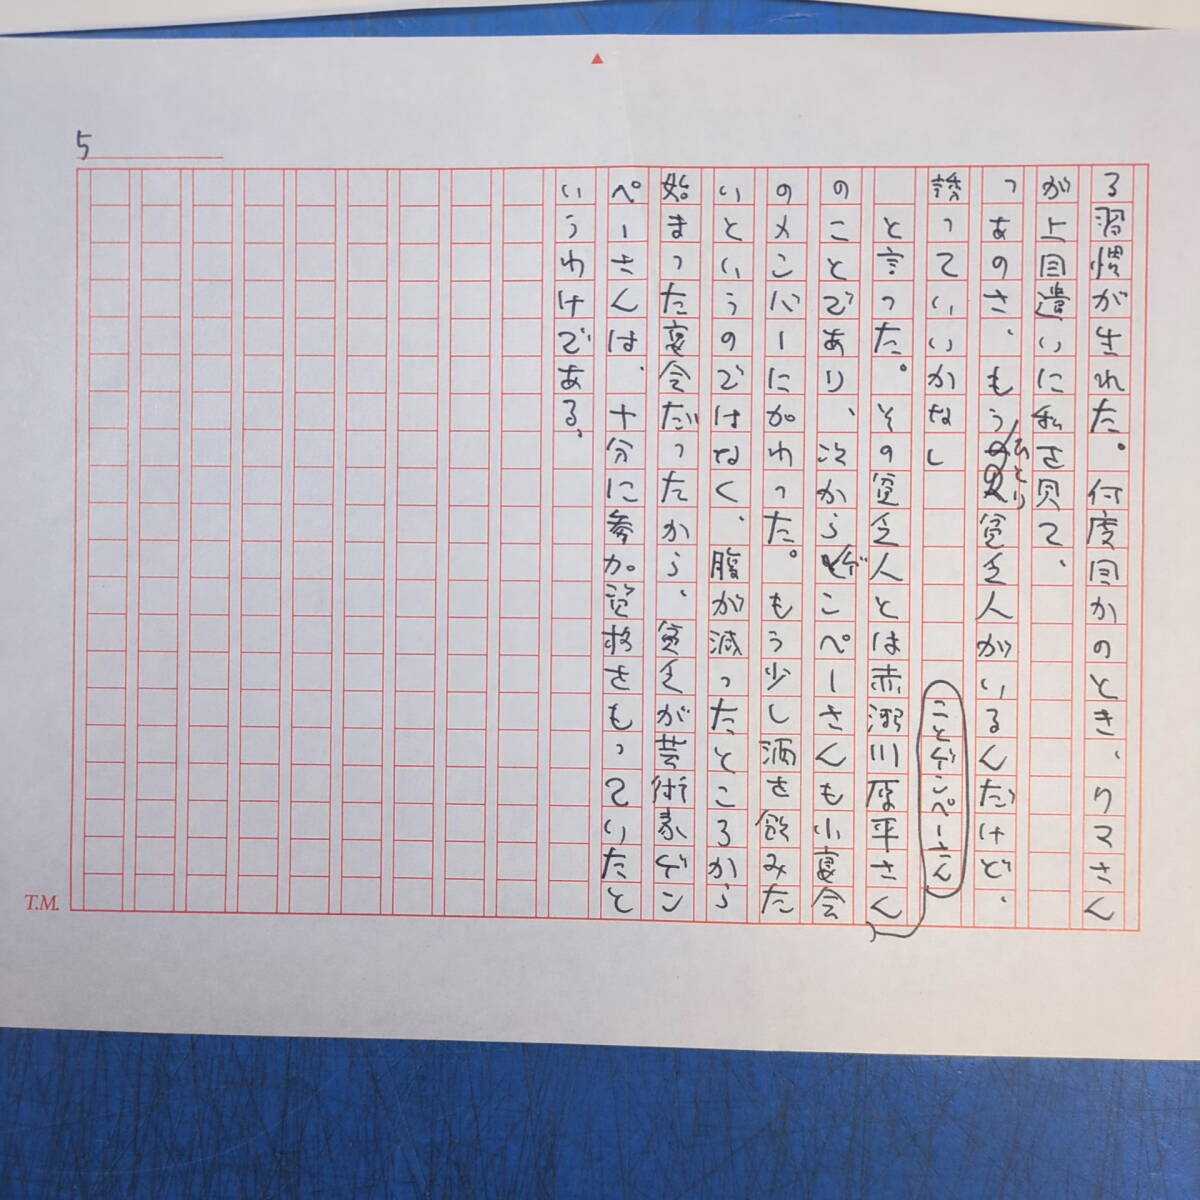 5
る習慣が生れた。何度目かのとき、クマさん
が上目遣いに私を見て、
「あのさ、もうひとり貧乏人がいるんだけど、
誘っていいかな」
と言った。その貧乏人とは赤瀬川原平さん
ことゲンペーさん
のことであり、次からゲンペーさんも小宴会
のメンバーに加わった。もう少し酒を飲みた
いというのではなく、腹が減ったところから
始まった宴会だったから、貧乏が芸術家ゲン
ペーさんは、十分に参加資格をもっていたと
いうわけである。
T.M.